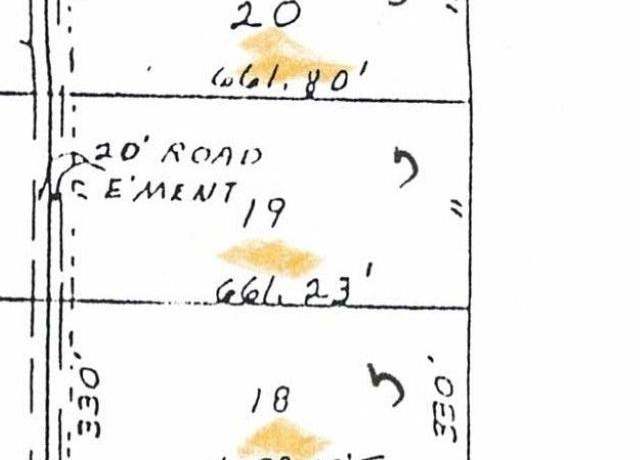 20
661.80'
20' ROAD
E'MENT
19
"
661.23'
330'
18
5
330'